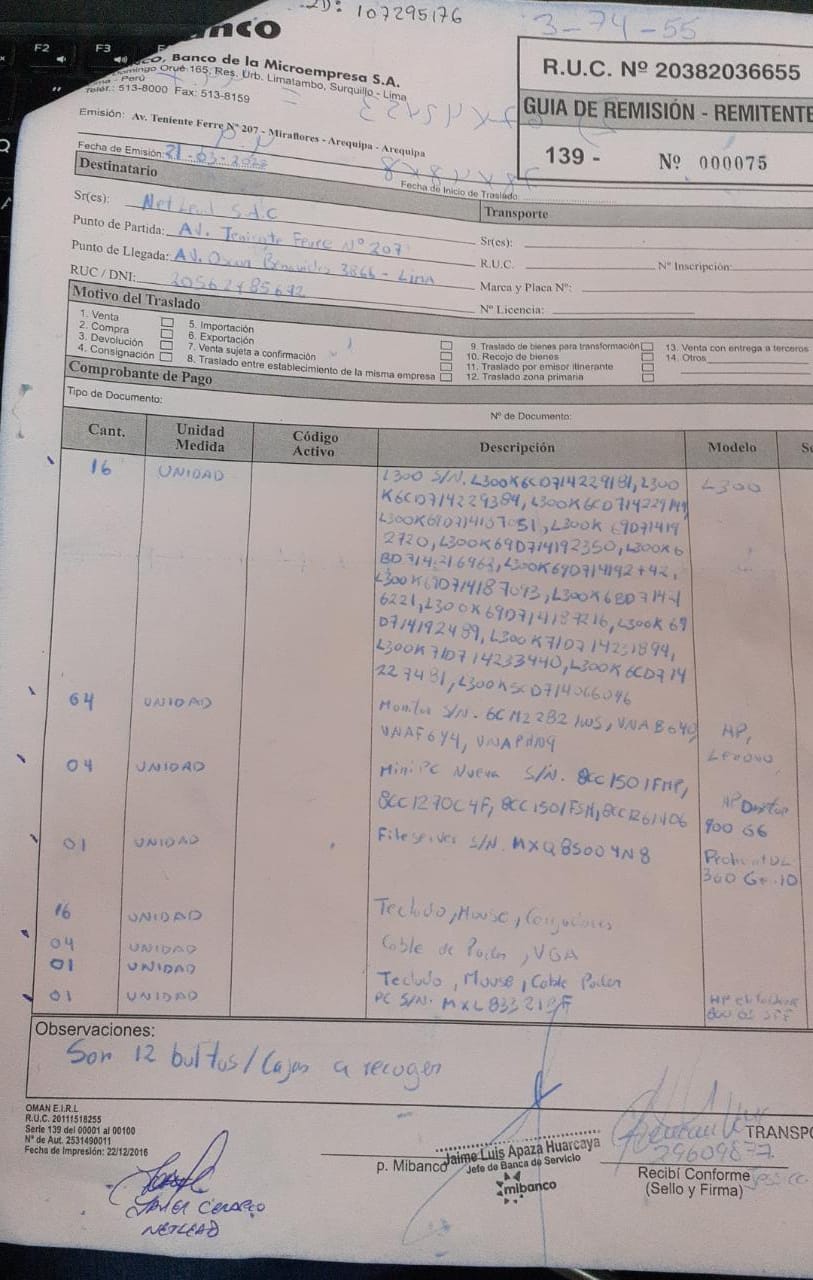 ID: 107295176
3-74-55
nco
CO, Banco de la Microempresa S.A.
Domingo Orué 165, Res. Urb. Limatambo, Surquillo - Lima
Lima - Perú
Teléf.: 513-8000 Fax: 513-8159
R.U.C. Nº 20382036655
GUIA DE REMISIÓN - REMITENTE
139 - Nº 000075
Emisión: Av. Teniente Ferre Nº 207 - Miraflores - Arequipa - Arequipa
Fecha de Emisión: 21-03-2022
Fecha de Inicio de Traslado
Destinatario
Sr(es): Netlead S.A.C
Punto de Partida: Av. Teniente Ferre Nº 207
Punto de Llegada: Av. Oscar Benavides 3866 - Lima
RUC / DNI: 20562485692
Transporte
Sr(es):
R.U.C. Nº Inscripción:
Marca y Placa Nº:
Nº Licencia:
Motivo del Traslado
1. Venta
2. Compra
3. Devolución
4. Consignación
5. Importación
6. Exportación
7. Venta sujeta a confirmación
8. Traslado entre establecimiento de la misma empresa
9. Traslado de bienes para transformación
10. Recojo de bienes
11. Traslado por emisor itinerante
12. Traslado zona primaria
13. Venta con entrega a terceros
14. Otros
Comprobante de Pago
Tipo de Documento:
Nº de Documento:
Cant. Unidad Medida Código Activo Descripción Modelo
16 UNIDAD L300 S/N. L300K6CD714229181, L300 L300
K6CD714229384, L300K6CD714229149
L300K69D714187051, L300K69D71419
2720, L300K69D714192350, L300K6
BD714216963, L300K69D714192742,
L300K69D714187093, L300K6BD7142
6221, L300K69D714187216, L300K69
D714192489, L300K71D714231894,
L300K71D714233440, L300K6CD714
227481, L300K5CD714066046
64 UNIDAD Monitor S/N. 6CM2282 , VNAB640, HP,
VNAF6Y4, VNAPHN9 Lenovo
04 UNIDAD Mini PC Nueva S/N. 8CC1501FMP,
8CC1270C4F, 8CC1501FSH, 8CC1261406 HP Desktop 400 G6
01 UNIDAD Fileserver S/N. MXQ85004N8 Proliant DL
360 Gen10
16 UNIDAD Teclado, Mouse,
04 UNIDAD Cable de Poder, VGA
01 UNIDAD Teclado, Mouse, Cable Poder
01 UNIDAD PC S/N. HP EliteDesk
800 G SFF
Observaciones:
Son 12 bultos/Cajas a recoger
OMAN E.I.R.L
R.U.C. 20111518255
Serie 139 del 00001 al 00100
Nº de Aut. 2531490011
Fecha de Impresión: 22/12/2016
NETLEAD
p. Mibanco
Jaime Luis Apaza Huarcaya
Jefe de Banca de Servicio
mibanco
TRANSPO
29609877
Recibí Conforme
(Sello y Firma)